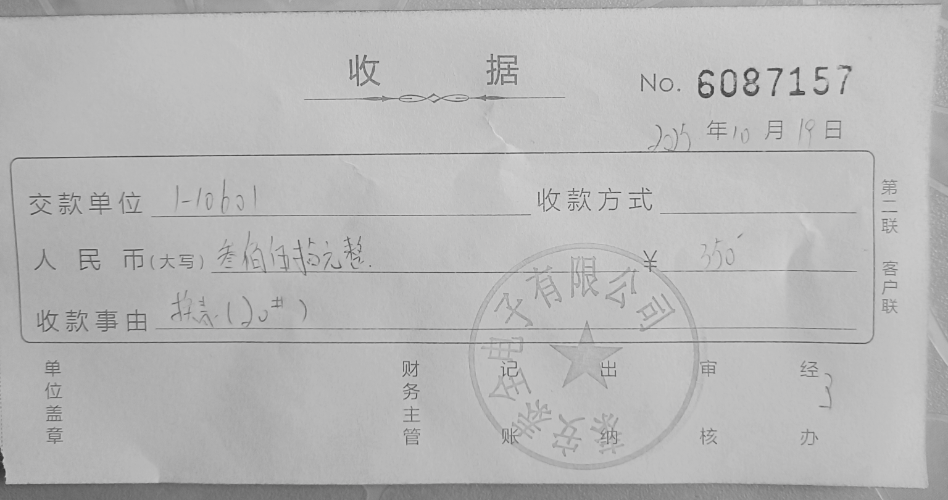 收 据
No. 6087157
2025 年 10 月 19 日
交款单位 1-10601 收款方式
人民币(大写) 叁佰伍拾元整 ¥ 350
收款事由 换表(20#)
第二联 客户联
单位盖章 财务主管 记账 出纳 审核 经办
泰安泰全电子有限公司